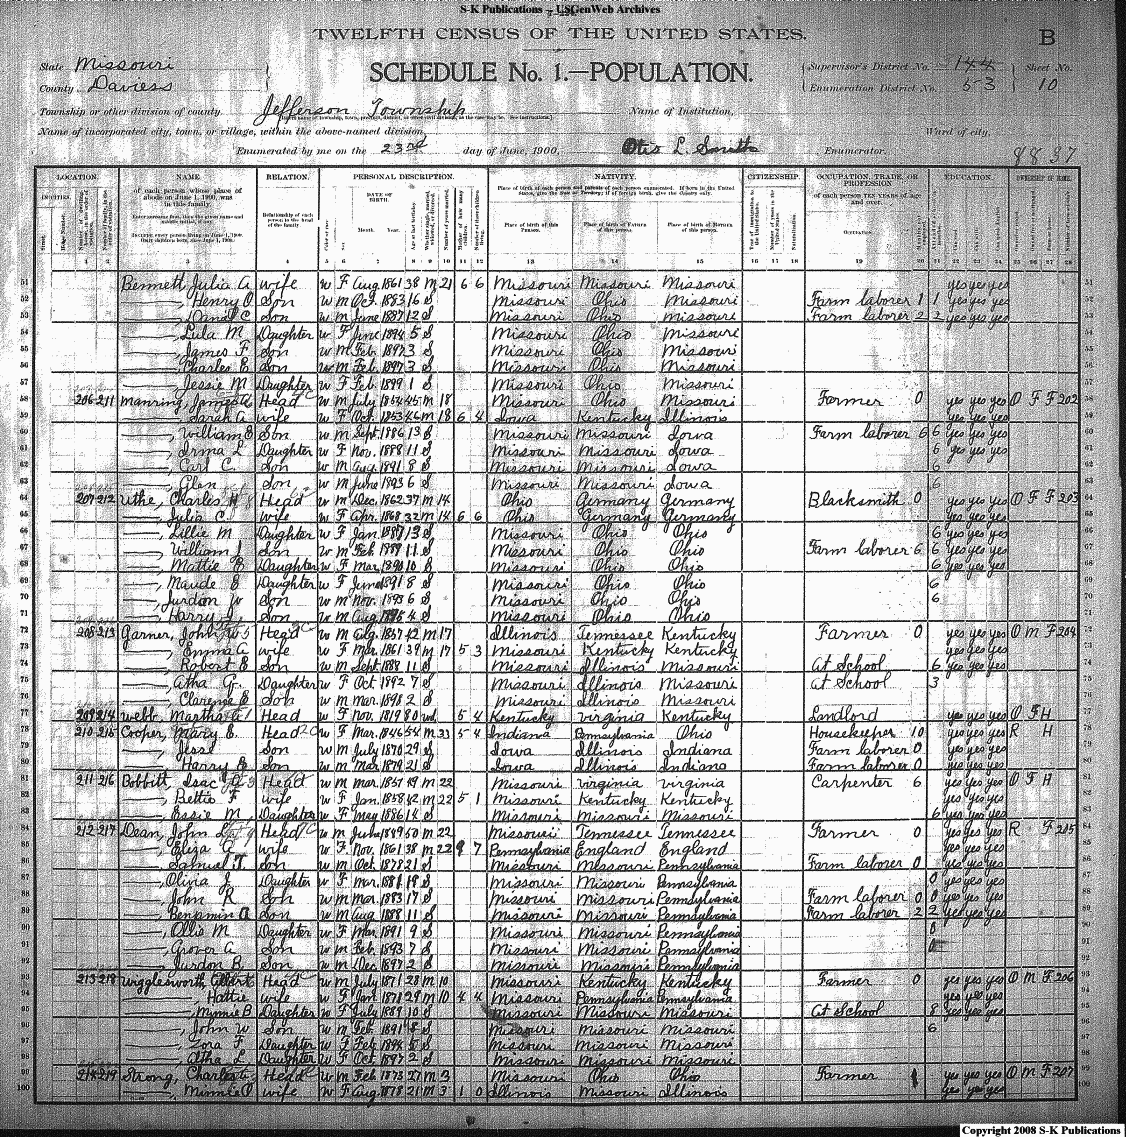 S-K Publications - USGenWeb Archives
TWELFTH CENSUS OF THE UNITED STATES.
B
State Missouri
County Daviess
SCHEDULE No. 1.—POPULATION.
Supervisor's District No. 144
Enumeration District No. 53
Sheet No. 10
Township or other division of county Jefferson Township
Name of Institution,
Name of incorporated city, town, or village, within the above-named division,
Ward of city,
Enumerated by me on the 23rd day of June, 1900, Otis L. Smith Enumerator.
LOCATION. NAME RELATION. PERSONAL DESCRIPTION. NATIVITY. CITIZENSHIP. OCCUPATION, TRADE, OR PROFESSION EDUCATION.
51 Bennett, Julia A wife w F Aug 1861 38 M 21 6 6 Missouri Missouri Missouri yes yes yes
52 Henry O Son w m Oct 1883 16 S Missouri Ohio Missouri Farm laborer 1 1 yes yes yes
53 C Son w m June 1887 12 S Missouri Ohio Missouri Farm laborer 2 2 yes yes yes
54 Lula M Daughter w F June 1894 5 S Missouri Ohio Missouri
55 James F Son w m Feb 1897 3 S Missouri Ohio Missouri
56 Charles E Son w m Feb 1897 3 S Missouri Ohio Missouri
57 Jessie M Daughter w F Feb 1899 1 S Missouri Ohio Missouri
58 206 211 Manring, James Head w m July 1854 45 M 18 Missouri Ohio Missouri Farmer yes yes yes O F F 202
59 Sarah A wife w F Oct 1853 46 M 18 6 4 Iowa Kentucky Illinois yes yes yes
60 William E Son w m Sept 1886 13 S Missouri Missouri Iowa Farm laborer 6 6 yes yes yes
61 Irma L Daughter w F Nov 1888 11 S Missouri Missouri Iowa 6 yes yes yes
62 Carl C Son w m Aug 1891 8 S Missouri Missouri Iowa 6
63 Glen Son w m June 1893 6 S Missouri Missouri Iowa 6
64 207 212 Uthe, Charles H Head w m Dec 1862 37 M 14 Ohio Germany Germany Blacksmith 0 yes yes yes O F F 203
65 Julia C wife w F Apr 1868 32 M 14 6 6 Ohio Germany Germany yes yes yes
66 Lillie M Daughter w F Jan 1887 13 S Missouri Ohio Ohio 6 yes yes yes
67 William J Son w m Feb 1889 11 S Missouri Ohio Ohio Farm laborer 6 6 yes yes yes
68 Mattie Daughter w F Mar 1890 10 S Missouri Ohio Ohio 6 yes yes yes
69 Maude E Daughter w F June 1891 8 S Missouri Ohio Ohio 6
70 Jurdon W Son w m Nov 1893 6 S Missouri Ohio Ohio 6
71 Harry Son w m Aug 1895 4 S Missouri Ohio Ohio
72 208 213 Garner, John Head w m Aug 1857 42 M 17 Illinois Tennessee Kentucky Farmer 0 yes yes yes O M F 204
73 Emma A wife w F Mar 1861 39 M 17 5 3 Missouri Kentucky Kentucky yes yes yes
74 Robert E Son w m Sept 1888 11 S Missouri Illinois Missouri At School 6 yes yes yes
75 Atha G Daughter w F Oct 1892 7 S Missouri Illinois Missouri At School 3
76 Clarence E Son w m Mar 1898 2 S Missouri Illinois Missouri
77 209 214 Webb, Martha Head w F Nov 1819 80 wd 5 4 Kentucky Virginia Kentucky Landlord yes yes yes O F H
78 210 215 Cooper, Mary E Head w F Mar 1846 54 M 33 5 4 Indiana Pennsylvania Ohio Housekeeper 10 yes yes yes R H
79 Jesse Son w m July 1870 29 S Iowa Illinois Indiana Farm laborer 0 yes yes yes
80 Harry E Son w m Mar 1879 21 S Iowa Illinois Indiana Farm laborer 0 yes yes yes
81 211 216 Bobbitt, Isac Head w m Mar 1857 49 M 22 Missouri Virginia Virginia Carpenter 6 yes yes yes O F H
82 Bettie F wife w F Jan 1858 42 M 22 5 1 Missouri Kentucky Kentucky yes yes yes
83 Essie M Daughter w F May 1886 14 S Missouri Missouri Missouri 6 yes yes yes
84 212 217 Dean, John Head w m July 1849 50 M 22 Missouri Tennessee Tennessee Farmer 0 yes yes yes R F 205
85 Eliza A wife w F Nov 1861 38 M 22 9 7 Pennsylvania England England yes yes yes
86 Samuel T Son w m Oct 1878 21 S Missouri Missouri Pennsylvania Farm laborer 0 yes yes yes
87 Olivia J Daughter w F Mar 1881 19 S Missouri Missouri Pennsylvania 0 yes yes yes
88 John R Son w m Mar 1883 17 S Missouri Missouri Pennsylvania Farm laborer 0 0 yes yes yes
89 Benjamin A Son w m Aug 1888 11 S Missouri Missouri Pennsylvania Farm laborer 2 2 yes yes yes
90 Ollie M Daughter w F Mar 1891 9 S Missouri Missouri Pennsylvania
91 Grover A Son w m Feb 1893 7 S Missouri Missouri Pennsylvania
92 Jurdon B Son w m Dec 1897 2 S Missouri Missouri Pennsylvania
93 213 218 Wigglesworth, Elbert Head w m July 1871 28 M 10 Missouri Kentucky Kentucky Farmer 0 yes yes yes O M F 206
94 Hattie wife w F Jan 1871 29 M 10 4 4 Missouri Pennsylvania Pennsylvania yes yes yes
95 Minnie B Daughter w F July 1889 10 S Missouri Missouri Missouri At School 8 yes yes yes
96 John W Son w m Feb 1891 8 S Missouri Missouri Missouri 6
97 Zora F Daughter w F Feb 1894 5 S Missouri Missouri Missouri
98 Atha L Daughter w F Oct 1897 2 S Missouri Missouri Missouri
99 214 219 Strong, Charles Head w m Feb 1873 27 M 3 Missouri Ohio Ohio Farmer yes yes yes O M F 207
100 Minnie O wife w F Aug 1878 21 M 3 1 0 Illinois Missouri Illinois yes yes yes
Copyright 2008 S-K Publications